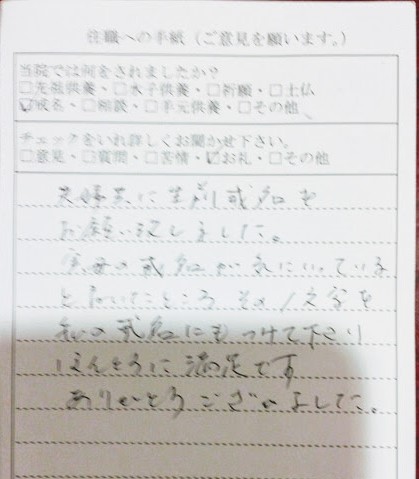 住職への手紙（ご意見を願います。）
当院では何をされましたか？
□先祖供養・□水子供養・□祈願・□土仏
☑戒名・□相談・□手元供養・□その他
チェックをいれ詳しくお聞かせ下さい。
□意見・□質問・□苦情・☑お礼・□その他
夫婦共に生前戒名を
お願い致しました。
実母の戒名が気にいっている
と書いたところ その1文字を
私の戒名にもつけて下さり
ほんとうに満足です
ありがとうございました。